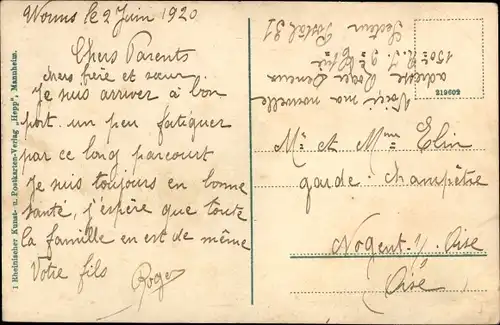 Worms le 2 Juin 1920
Chers Parents
chers frère et soeur
Je suis arriver à bon
port un peu fatiguer
par ce long parcourt
Je suis toujours en bonne
santé, j'espère que toute
la famille en est de même
Votre fils
Roger
Voici ma nouvelle
adresse Roger
150e R. I. 9e Cie
Secteur Postal 31
219602
Mr et Mme Elin
garde-champêtre
Nogent s/ Oise
Oise
1 Rheinischer Kunst- u. Postkarten-Verlag „Hepp", Mannheim.